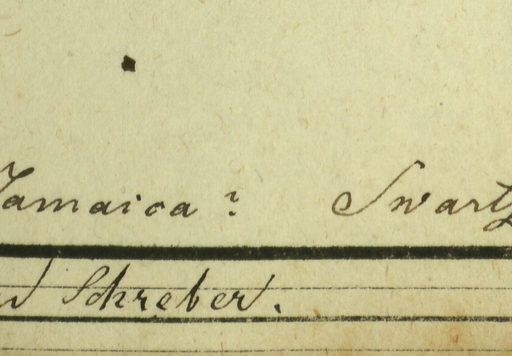 Jamaica? Swartz
Schreber.